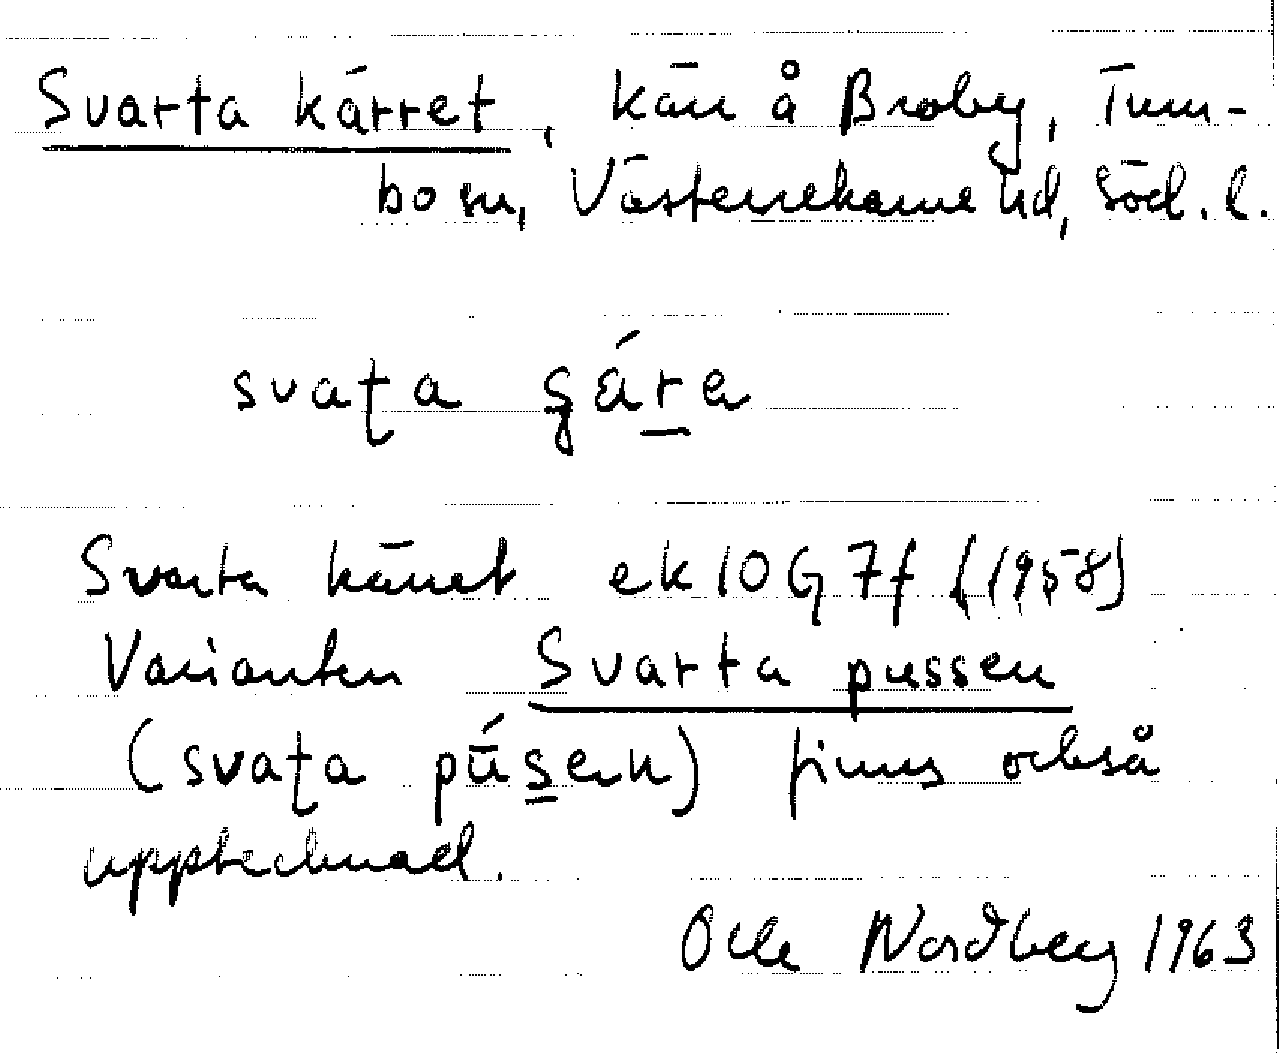 Svarta kärret, kärr å Broby, Tum-
bo sn, Västerrekarne hd, Söd. l.
svaʈa ɕä́re
Svarta kärret ek 10G 7f (1958)
Varianten Svarta pussen
(svaʈa pū́sen) finns också
upptecknad.
Olle Nordberg 1963